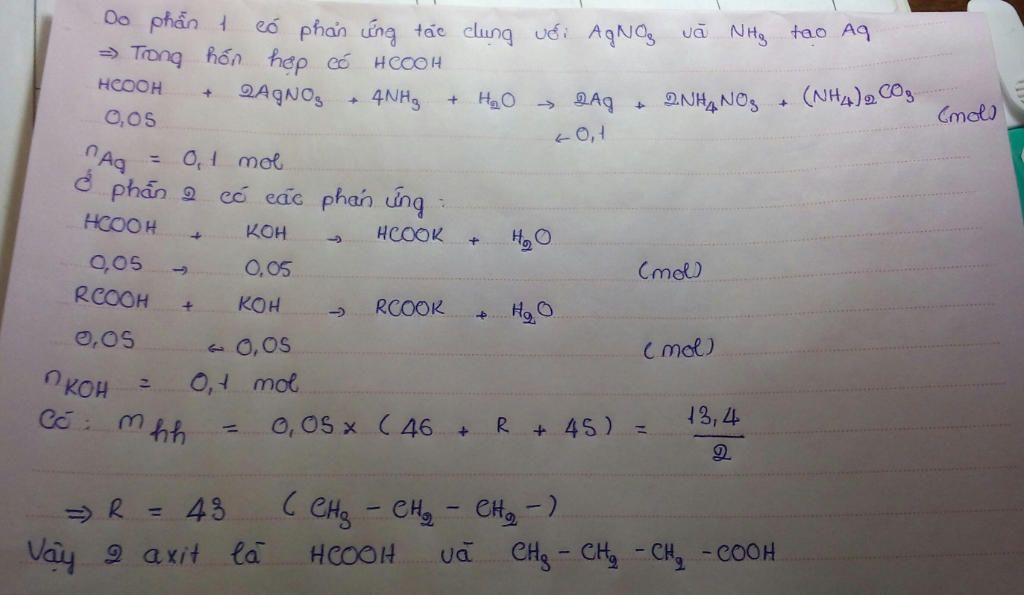 Do phần 1 có phản ứng tác dụng với AgNO3 và NH3 tạo Ag
⇒ Trong hỗn hợp có HCOOH
HCOOH + 2AgNO3 + 4NH3 + H2O → 2Ag + 2NH4NO3 + (NH4)2CO3
0,05 ← 0,1 (mol)
nAg = 0,1 mol
Ở phần 2 có các phản ứng:
HCOOH + KOH → HCOOK + H2O
0,05 → 0,05 (mol)
RCOOH + KOH → RCOOK + H2O
0,05 ← 0,05 (mol)
nKOH = 0,1 mol
Có: mhh = 0,05 x (46 + R + 45) = 13,4/2
⇒ R = 43 (CH3 - CH2 - CH2 -)
Vậy 2 axit là HCOOH và CH3 - CH2 - CH2 - COOH